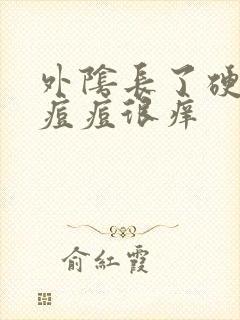 外陰長了硬
痘痘很痒
俞紅霞